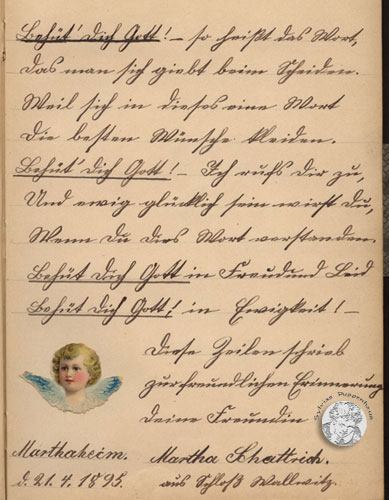 Behüt' Dich Gott! – so heißt das Wort,
Das man sich giebt beim Scheiden.
Weil sich in dieses eine Wort
Die besten Wünsche kleiden.
Behüt' Dich Gott! – Ich rufs Dir zu,
Und ewig glücklich sein wirst Du,
Wenn Du dies Wort verstanden.
Behüt Dich Gott in Freud und Leid
Behüt Dich Gott! in Ewigkeit! –
Diese Zeilen schrieb
zur freundlichen Erinnerung
Deine Freundin
Marthaheim. Martha Schattrich.
d. 21. 4. 1895. aus Schloß Wallwitz.